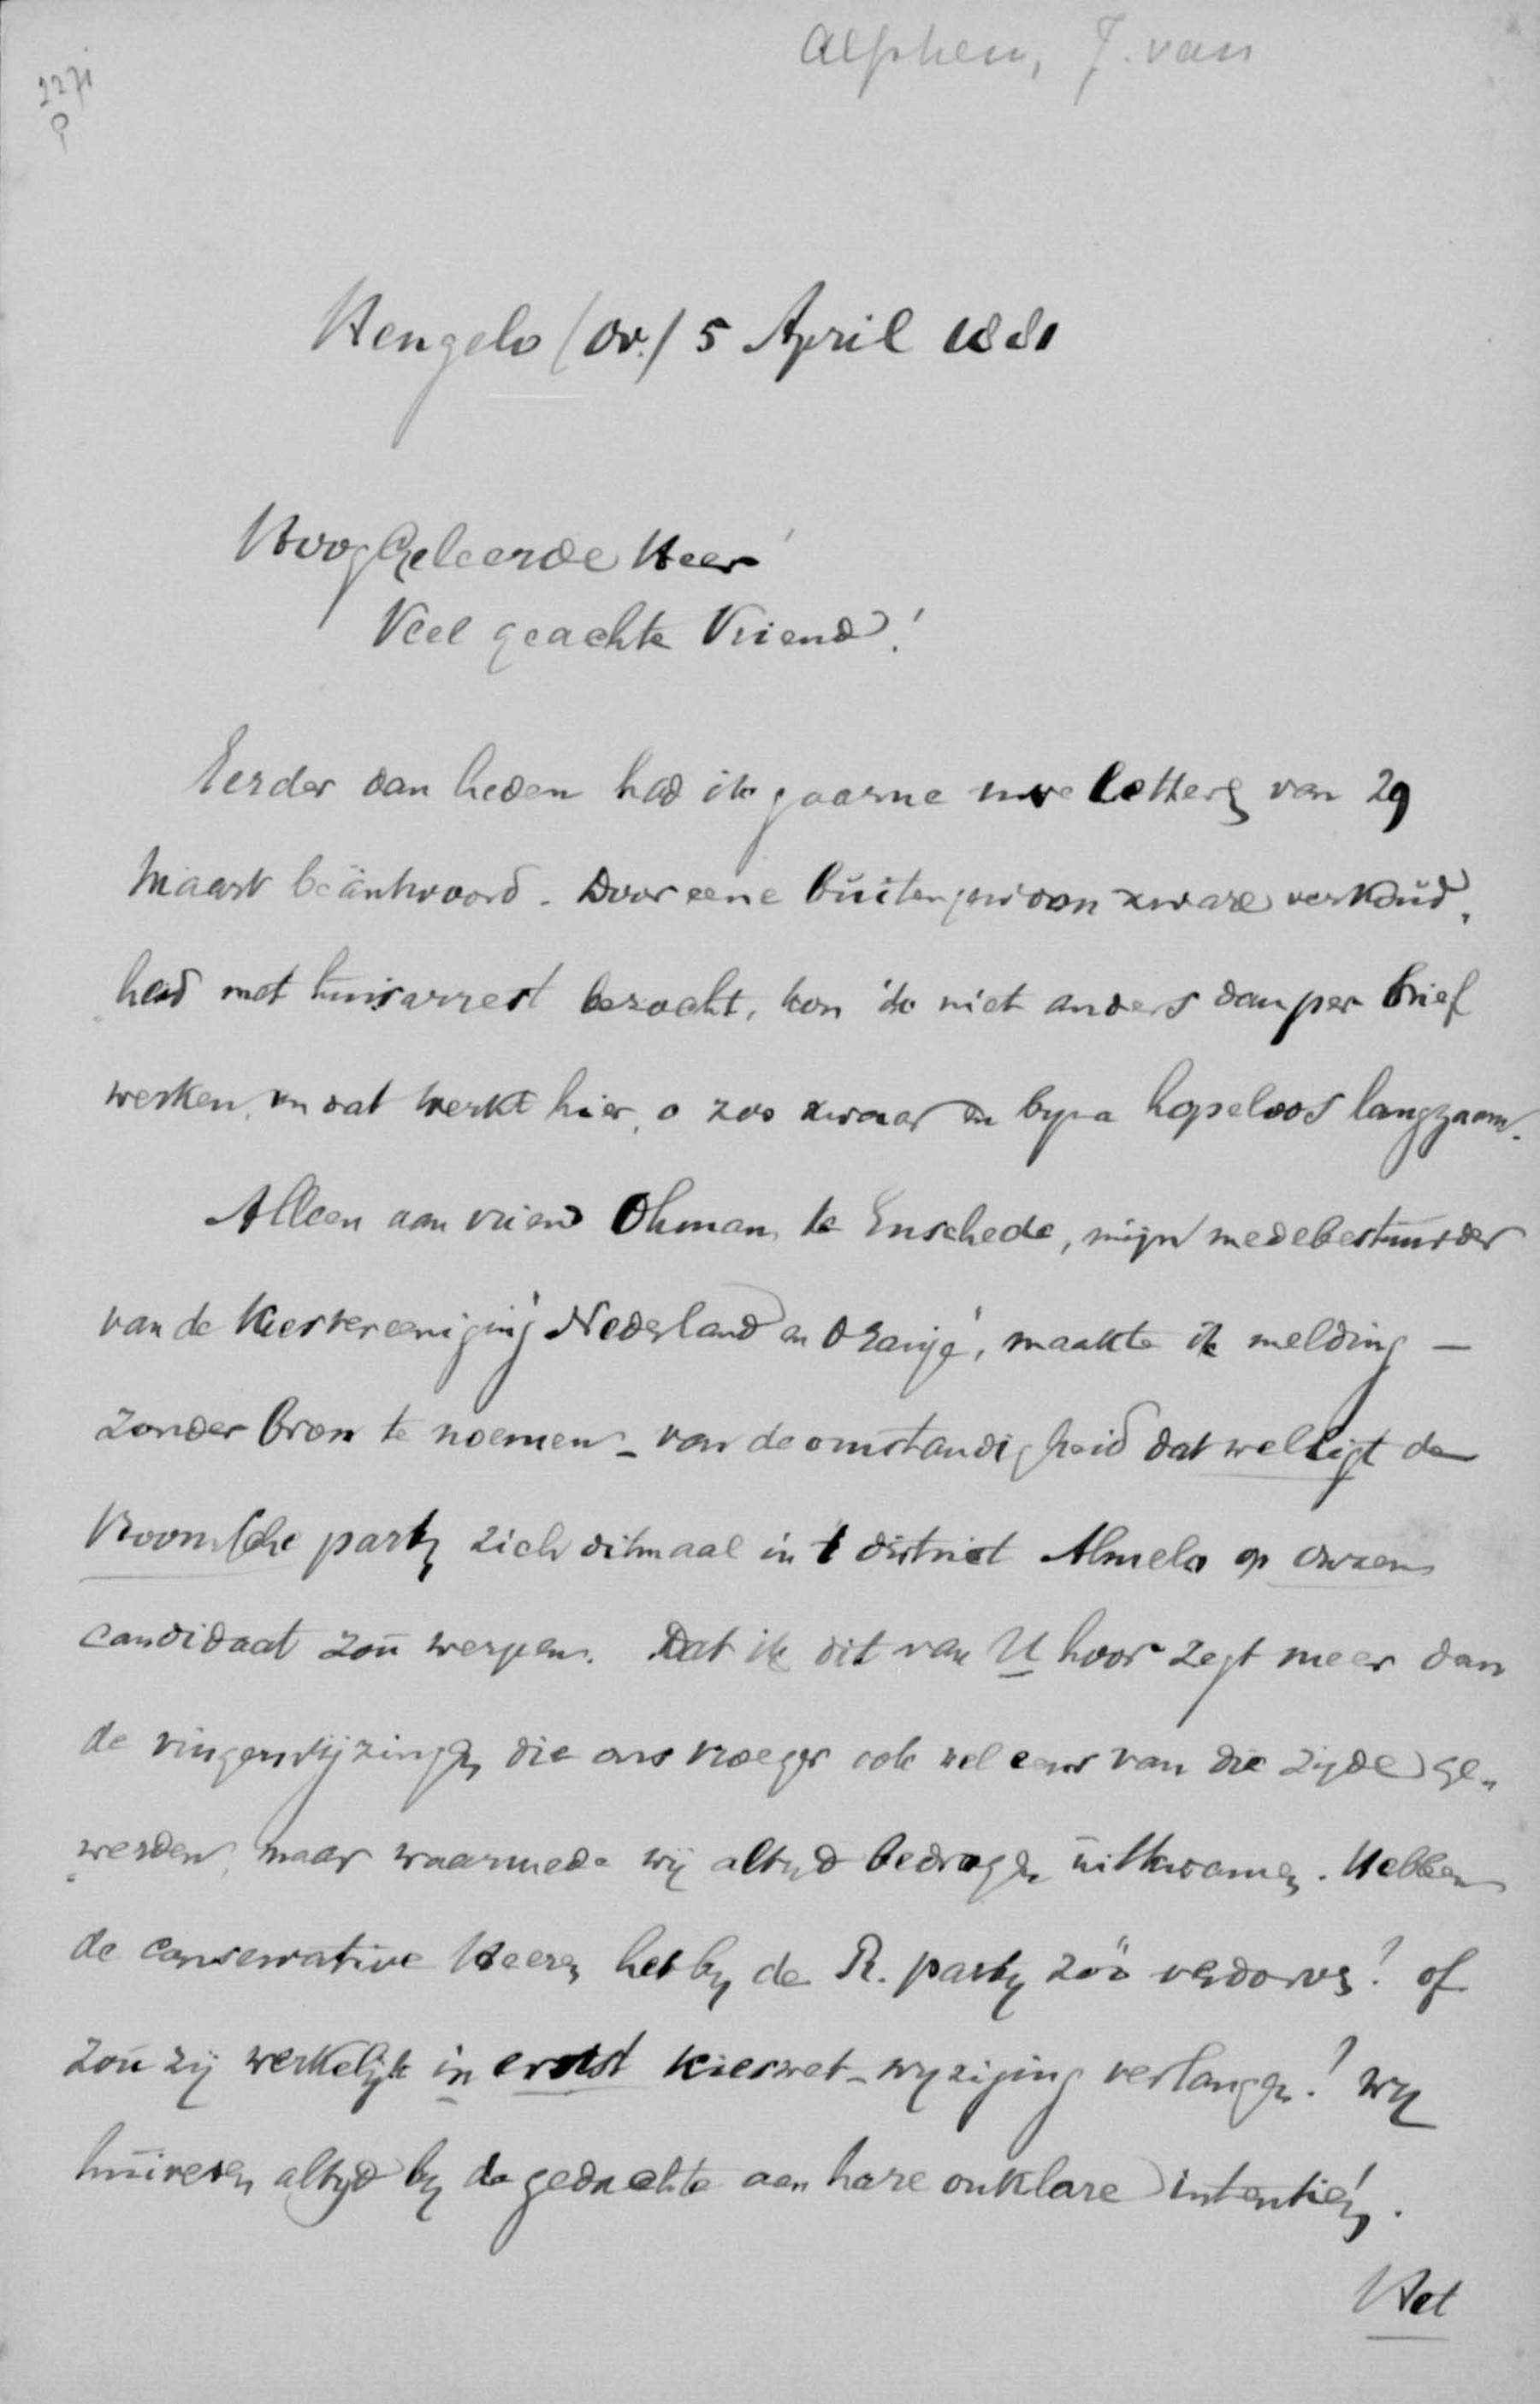 Alphen, J. van
2271
Hengelo (Ov.) 5 April 1881
HoogGeleerde Heer
Veel geachte Vriend!
Eerder dan heden had ik gaarne uwe letters van 29
Maart beäntwoord. Door eene buitengewoon zware verkoud,,
heid met huisarrest bezocht, kon ik niet anders dan per brief
werken, en dat werkt hier, o zoo zwaar en byna hopeloos langzaam.
Alleen aan vriend Ohman te Enschede, mijn medebestuurder
van de Kiesvereeniging "Nederland en Oranje", maakte ik melding —
zonder bron te noemen – van de omstandigheid dat welligt de
Roomsche party zich ditmaal in 't district Almelo op onzen
candidaat zou werpen. Dat ik dit van U hoor zegt meer dan
de vingerwijzingen die ons vroeger ook wel eens van die zijde ge,,
werden, maar waarmede wij altyd bedrogen uitkwamen. Hebben
de conservative Heeren het by de R. party zóó verdorven? of
zou zij werkelijk in ernst kieswet-wyziging verlangen? Wy
huiveren altyd by de gedachte aan hare onklare intentiën.
Het